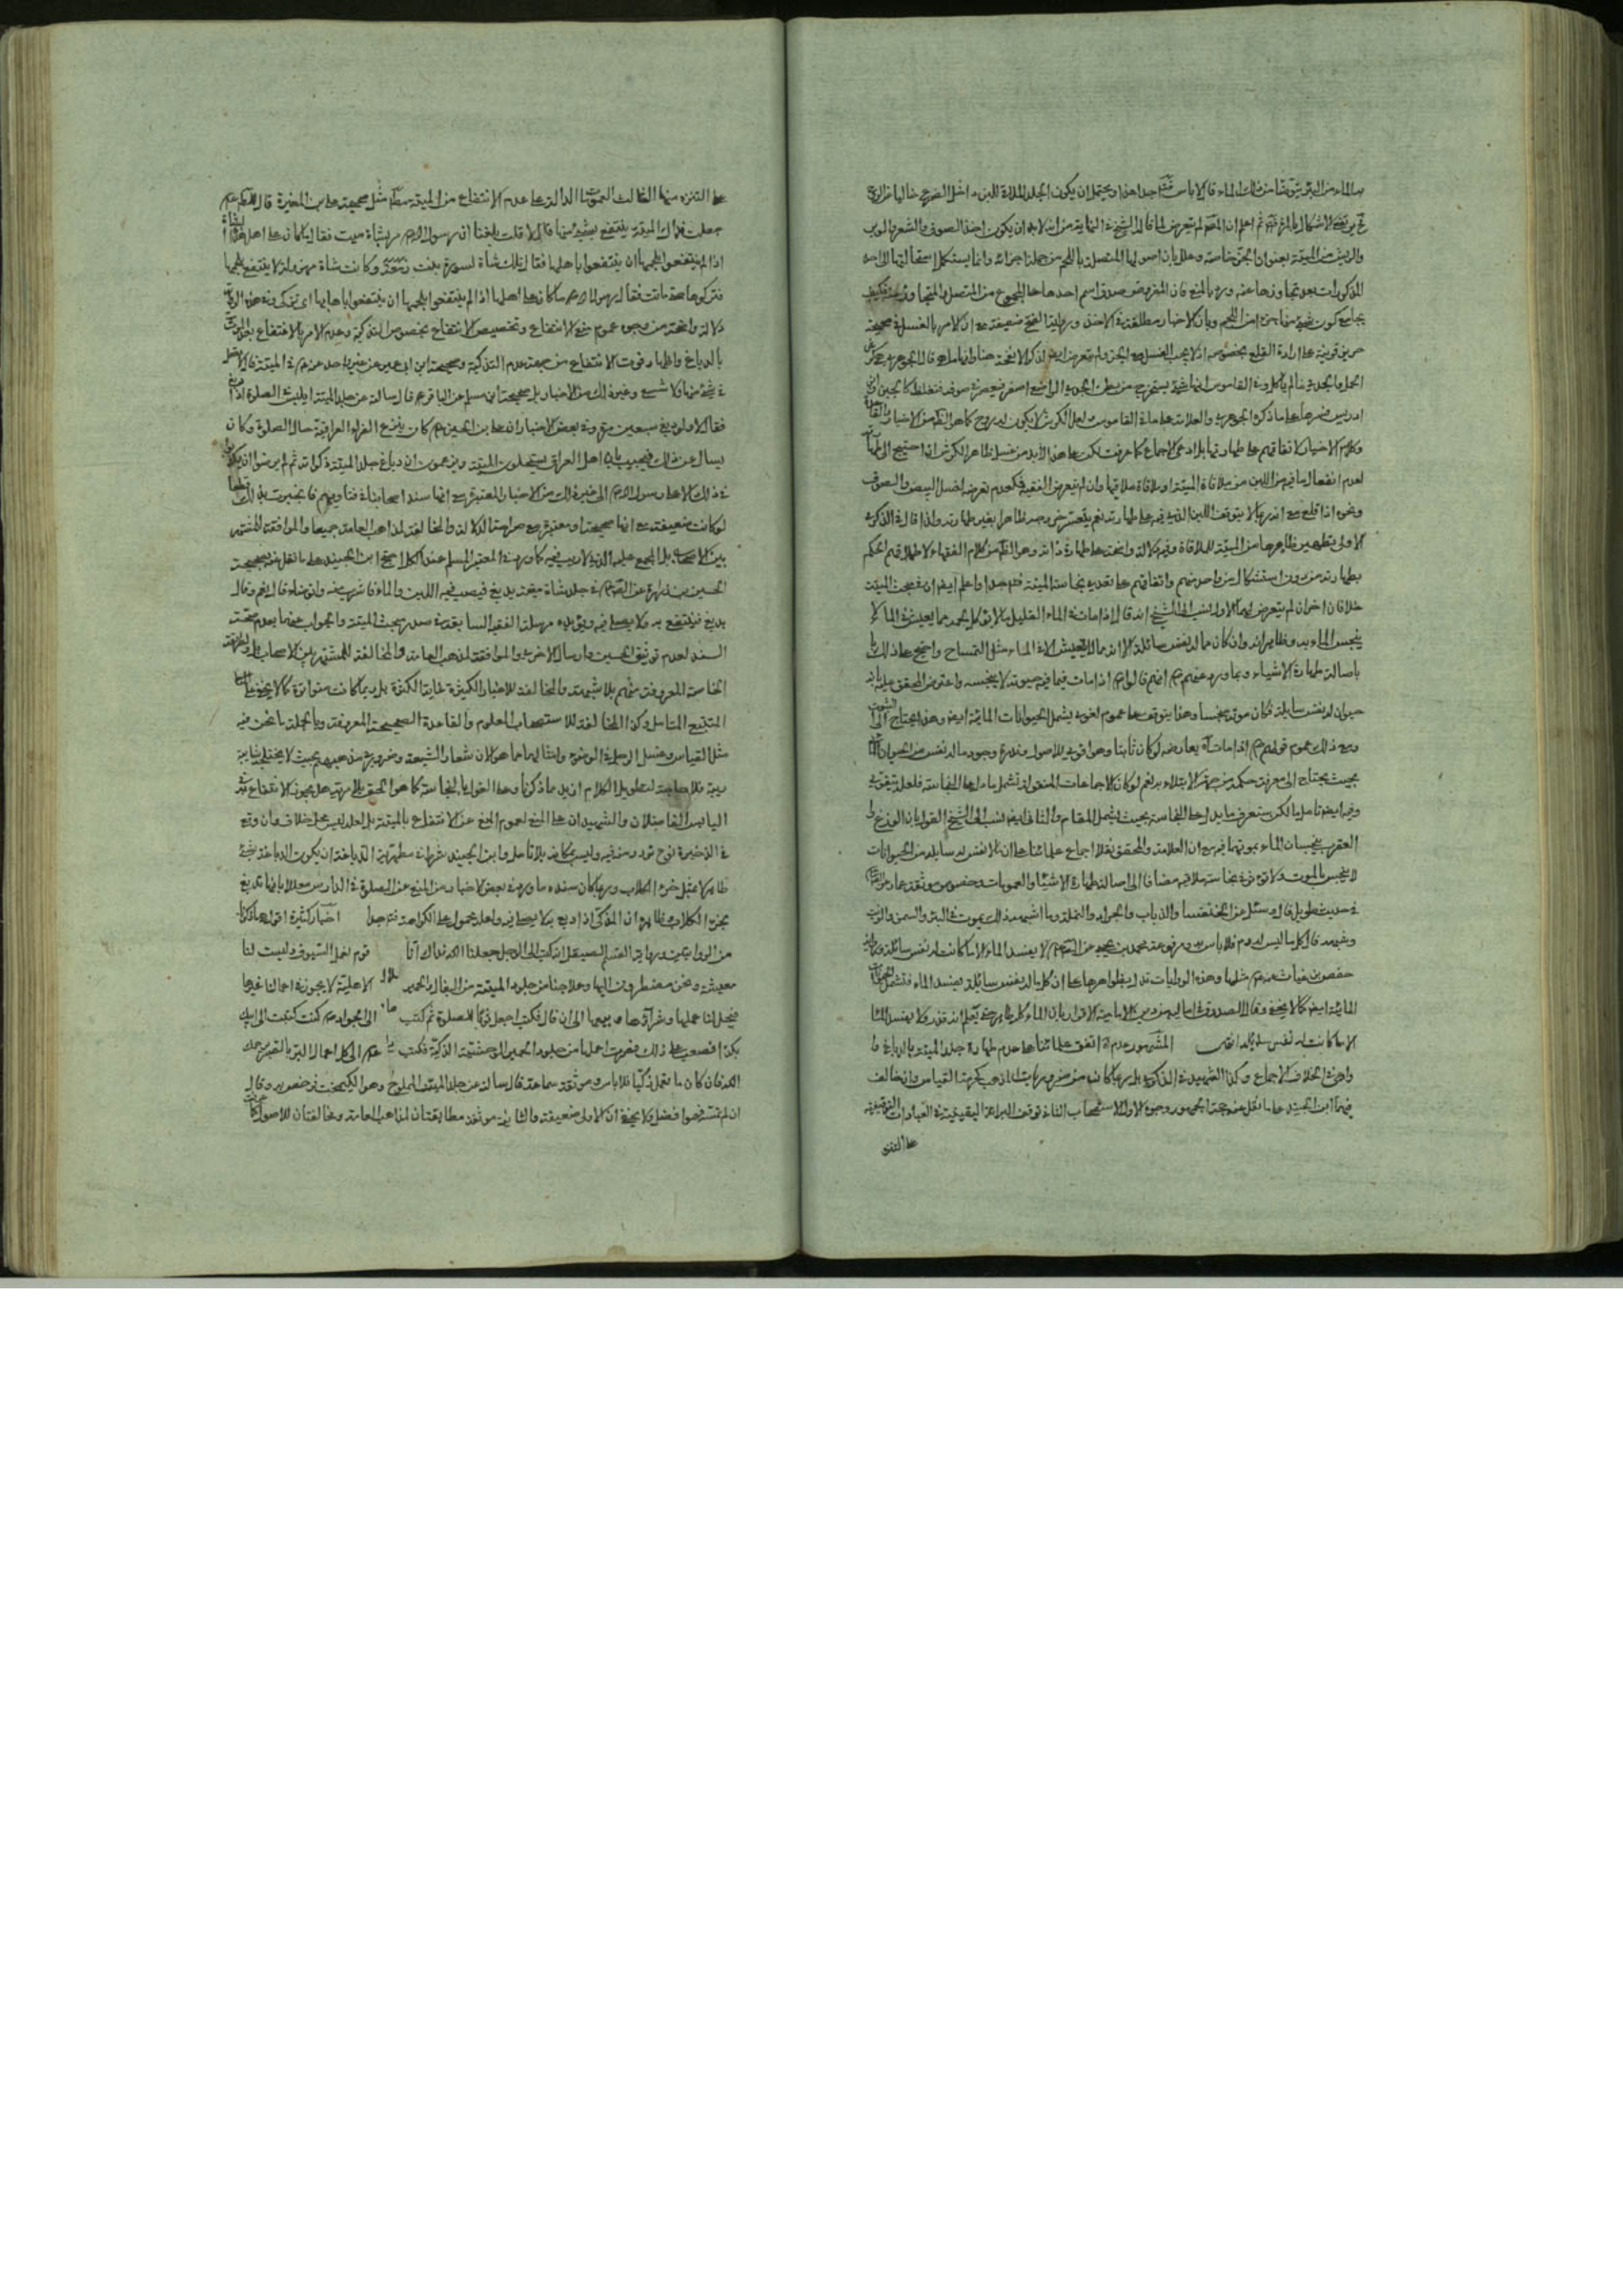 من الماء من البئر يتوضأ من ذلك الماء قال لا باس جدا هذا ويحتمل ان يكون الجلد الملاقى للبن داخل الضرع خاليا من الروح
ثم اعلم ان المصنف لم يتعرض لما قاله الشيخ في النهاية من انه لا بد ان يكون اخذ الصوف والشعر والوبر
والريش من الميتة بعنوان الجز خاصة وعلل بان اصولها المتصلة باللحم من جملة اجزائه وانما يستكمل استحالتها الى احد
المذكورات بعد تجاوزها عنه ورد بالمنع فان المفروض صدق اسم احدها على المجموع من المتصل والمتجاوز
يجامع كون شيء منها جزء من اللحم وبان الاخبار مطلقة في الاخذ ورواية الفتح ضعيفة مع ان الامر بالغسل في صحيحة
حريز قرينة على ارادة القلع بخصوصه اذ لا يجب الغسل مع الجز ولم يتعرض ايضا لذكر الانفحة هنا وانها ما هي قال الجوهري هي كرش
الحمل والجدي ما لم ياكل وفي القاموس انها شيء يستخرج من بطن الجدي الراضع اصفر فيعصر في صوفة فيغلظ كالجبن
ادريس فسرها على ما ذكره الجوهري والعلامة على ما في القاموس ولعل الكرش لا يكون له روح كما هو الظاهر من الاخبار
وكلام الاخيار لاتفاقهم على طهارتها بل ادعى الاجماع كما عرفت لكن على هذا لا بد من غسل ظاهر الكرش اذا احتيج الى طهارته
لعدم انفعال ما فيه من اللبن من ملاقاة الميتة وملاقاة ملاقيها وان لم يتعرض الفقيه فكعدم تعرضه لغسل البيض والصوف
ونحوه اذا قلع مع انه ربما لا يتوقف اللبن الذي فيه على طهارته نعم يتعسر خروجه ظاهرا بغير طهارته ولذا قال في الذكرى
الاولى تطهير ظاهرها من الميتة للملاقاة وفيه دلالة واضحة على طهارة ذاته وهو الظاهر من كلام الفقهاء لاطلاقهم الحكم
بطهارته من دون استشكال من واحد منهم واتفاقهم على تعدي نجاسة الميتة فتدبر جدا واعلم ايضا ان في مبحث الميتة
خلافان اخران لم يتعرض لهما الاول نسب الى الشيخ انه قال اذا مات في الماء القليل ما لا يؤكل لحمه مما يعيش في الماء لا
ينجس الماء به وظاهره انه وان كان مما له نفس سائلة الا انه مما لا يعيش الا في الماء مثل التمساح واحتج على ذلك
باصالة طهارة الاشياء وبما ورد عنهم انهم قالوا اذا مات فيما فيه حيوته لا ينجسه واعترض المحقق عليه بانه
حيوان له نفس سايلة فكان موته منجسا وهذا يتوقف على عموم لغوي يشمل الحيوانات المائية ايضا وهذا يحتاج الى
ومع ذلك عموم قولهم اذا مات آه يعارضه لو كان ثابتا وهو اقوى للاصول وندرة وجود ما له نفس من الحيوان
بحيث يحتاج الى معرفة حكمه من جهة الابتلاء به نعم لو كان الاجماعات المنقولة تشمل ما دل على النجاسة فلعله يتقوى
وفيه ايضا تامل بل لكن ستعرف ما يدل على النجاسة بحيث يشمل المقام والثاني ايضا نسب الى الشيخ القول بان الوزغ و
العقرب ينجسان الماء بموتهما فيه مع ان العلامة والمحقق نقلا اجماع علمائنا على ان ما لا نفس له سايلة من الحيوانات
لا ينجس بالموت ولا يؤثر في نجاسة ملاقيه مضافا الى اصالة طهارة الاشياء والعمومات وخصوص موثقة عمار
في حديث طويل قال وسئل عن الخنفساء والذباب والجراد والنملة وما اشبه ذلك يموت في البئر والسمن والزيت
وشبهه قال كل ما ليس له دم فلا باس به ومرفوعة محمد بن يحيى عن الصادق لا يفسد الماء الا ما كانت له نفس سائلة
حفص بن غياث عنه مثلها وهذه الروايات تدل بظواهرها على ان كل ما له نفس سائلة يفسد الماء فتشمل
المائية ايضا كما لا يخفى وقال الصدوق في اماليه من دين الامامية الاقرار بان الماء كله طاهر حتى يعلم انه قذر ولا يفسد الماء
الا ما كانت له نفس سايلة المشهور عدم اتفق علمائنا على عدم طهارة جلد الميتة بالدباغ
وكذا الشهيد في الذكرى بل ربما كان من ضروريات المذهب كحرمة القياس وان خالف
فيها ابن الجنيد على ما نقل عنه حجة المشهور وجوه الاول الاستصحاب الثاني توقف البراءة اليقينية في العبادات التوقيفية
على التنزه
على التنزه منها الثالث العمومات الدالة على عدم الانتفاع من الميتة مطلقا مثل صحيحة علي بن المغيرة قال
جعلت فداك الميتة ينتفع بشيء منها قال لا قلت بلغنا ان رسول الله مر بشاة ميت فقال ما كان على اهل هذه الشاة
اذا لم ينتفعوا بلحمها ان ينتفعوا باهابها فقال تلك شاة لسودة بنت زمعة وكانت شاة مهزولة لا ينتفع بلحمها
فتركوها حتى ماتت فقال رسول الله ما كان على اهلها اذا لم ينتفعوا بلحمها ان ينتفعوا باهابها اي تذكى وفي هذه الرواية
دلالة واضحة من وجوه عموم منع الانتفاع وتخصيص الانتفاع بخصوص التذكية وعدم الامر بالانتفاع
بالدباغ واظهار فوت الانتفاع من جهة عدم التذكية وصحيحة ابن ابي عمير عن غير واحد عنه في الميتة قال لا تصل
في شيء منها ولا شسع وغير ذلك من الاخبار بل صحيحة ابن مسلم عن الباقر قال سالته عن جلد الميتة ايلبس في الصلوة اذا دبغ
فقال لا ولو دبغ سبعين مرة وفي بعض الاخبار ان علي بن الحسين كان ينزع الفراء العراقية حال الصلوة وكان
يسال عن ذلك فيجيب بان اهل العراق يستحلون الميتة ويزعمون ان دباغ جلد الميتة ذكوته ثم لم يرضوا ان
في ذلك الا على رسول الله الى غير ذلك من الاخبار المعتبرة مع انها سند اصحابنا في فتاويهم فانجبرت بذلك
لو كانت ضعيفة مع انها صحيحة او معتبرة مع صراحة الدلالة والمخالفة لمذاهب العامة جميعا والموافقة للمشتهر
بين الاصحاب بل المجمع عليه الذي لا ريب فيه كما ورد في المعتبر المسلم عند الكل احتج ابن الجنيد على ما نقل عنه بصحيحة
الحسين بن زرارة عن الصادق في جلد شاة ميتة يدبغ فيصب فيه اللبن والماء فاشرب منه واتوضأ قال نعم وقال
يدبغ فينتفع به ولا يصلى فيه ويؤيده مرسلة الفقيه السابقة في صدر مبحث الميتة والجواب عنهما بعدم صحة
السند لعدم توثيق الحسين وارسال الاخرى والموافقة لمذهب العامة والمخالفة للمشتهر بين الاصحاب
الخاصة المعروفة منهم بلا شبهة والمخالفة للاخبار الكثيرة غاية الكثرة بل ربما كانت متواترة كما لا يخفى على
المتتبع المتامل وكذا المخالفة للاستصحاب المعلوم والقاعدة الصحيحة المعروفة وبالجملة ما نحن فيه
مثل القياس وغسل الرجل في الوضوء وامثالهما مما هو الان شعار الشيعة وضروري مذهبهم بحيث لا يختفي بشائبة
ريبة فلا حاجة لتطويل الكلام ازيد مما ذكرنا وعلى القول بالنجاسة كما هو الحق بلا مرية هل يجوز الانتفاع به في
اليابس الفاضلان والشهيدان على المنع لعموم المنع عن الانتفاع بالميتة بل لعله ليس محل خلاف وان وقع
في الذخيرة نوع تردد منه فيه وليس بمكانه بلا تامل وابن الجنيد شرط في مطهرية الدباغة ان يكون الدباغة بشيء
طاهر لا بمثل خرء الكلاب وربما كان سنده ما ورد في بعض الاخبار من المنع عن الصلوة في الدارش معللا بانها تدبغ
بخرء الكلاب وظاهره ان المذكى اذا دبغ به لا يصلى فيه ولعله محمول على الكراهة فتدبر جدا اخبار كثيرة اقواها ما ذكرنا
من الروايتين ورواية القسم الصيقل انه كتب الى الرجل جعلنا الله فداك انا قوم نعمل السيوف وليست لنا
معيشة ونحن مضطرون اليها وعلاجنا من جلود الميتة من البغال والحمير الاهلية لا يجوز في اعمالنا غيرها
فيحل لنا عملها وشرآؤها وبيعها الى ان قال فكتب اجعل ثوبا للصلوة ثم كتب الى الجواد كنت كتبت الى ابيك
بكذا فصعب علي ذلك فصرت اعملها من جلود الحمير الوحشية الذكية فكتب الي كل اعمال البر بالصبر يرحمك
الله فان كان ما تعمل ذكيا فلا باس وموثقة سماعة قال سالته عن جلد الميتة المملوح وهو الكيمخت فرخص فيه وقال
ان لم تمسه فهو افضل ولا يخفى ان الاولى ضعيفة والثانية موثقة مطابقتان لمذاهب العامة ومخالفتان للاصول